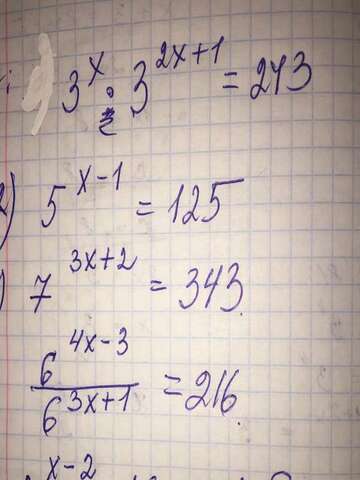 3^x · 3^{2x+1} = 243
2) 5^{x-1} = 125
) 7^{3x+2} = 343
6^{4x-3} / 6^{3x+1} = 216
x-2